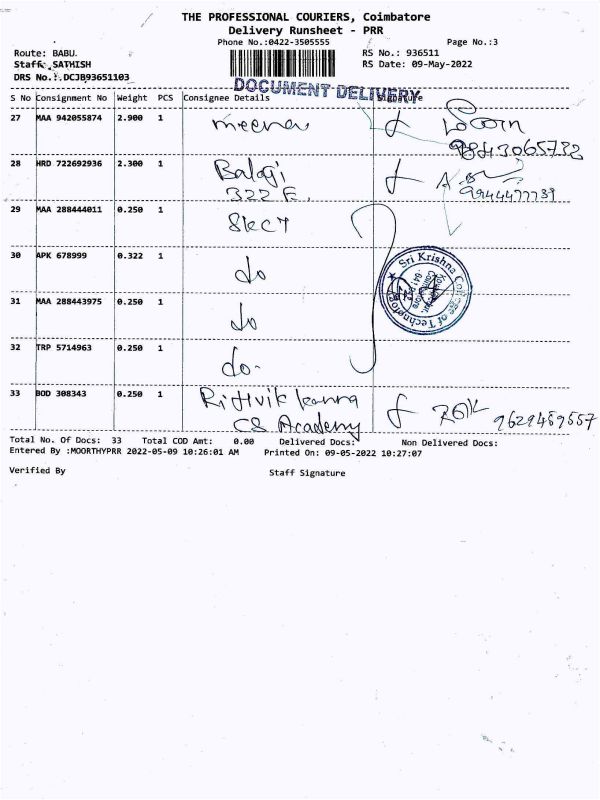 THE PROFESSIONAL COURIERS, Coimbatore
Delivery Runsheet - PRR
Phone No.:0422-3505555 Page No.:3
Route: BABU. RS No.: 936511
Staff: SATHISH RS Date: 09-May-2022
DRS No.: DCJB93651103
DOCUMENT DELIVERY
S No Consignment No Weight PCS Consignee Details
27 MAA 942055874 2.900 1 meena
9843065732
28 HRD 722692936 2.300 1 Balaji
322 E. 9944477739
29 MAA 288444011 0.250 1 Skct
30 APK 678999 0.322 1 do
Sri Krishna College of Technology
31 MAA 288443975 0.250 1 do
32 TRP 5714963 0.250 1 do-
33 BOD 308343 0.250 1 Rithvik kanna
CS Academy 9629489557
Total No. Of Docs: 33 Total COD Amt: 0.00 Delivered Docs: Non Delivered Docs:
Entered By :MOORTHYPRR 2022-05-09 10:26:01 AM Printed On: 09-05-2022 10:27:07
Verified By Staff Signature